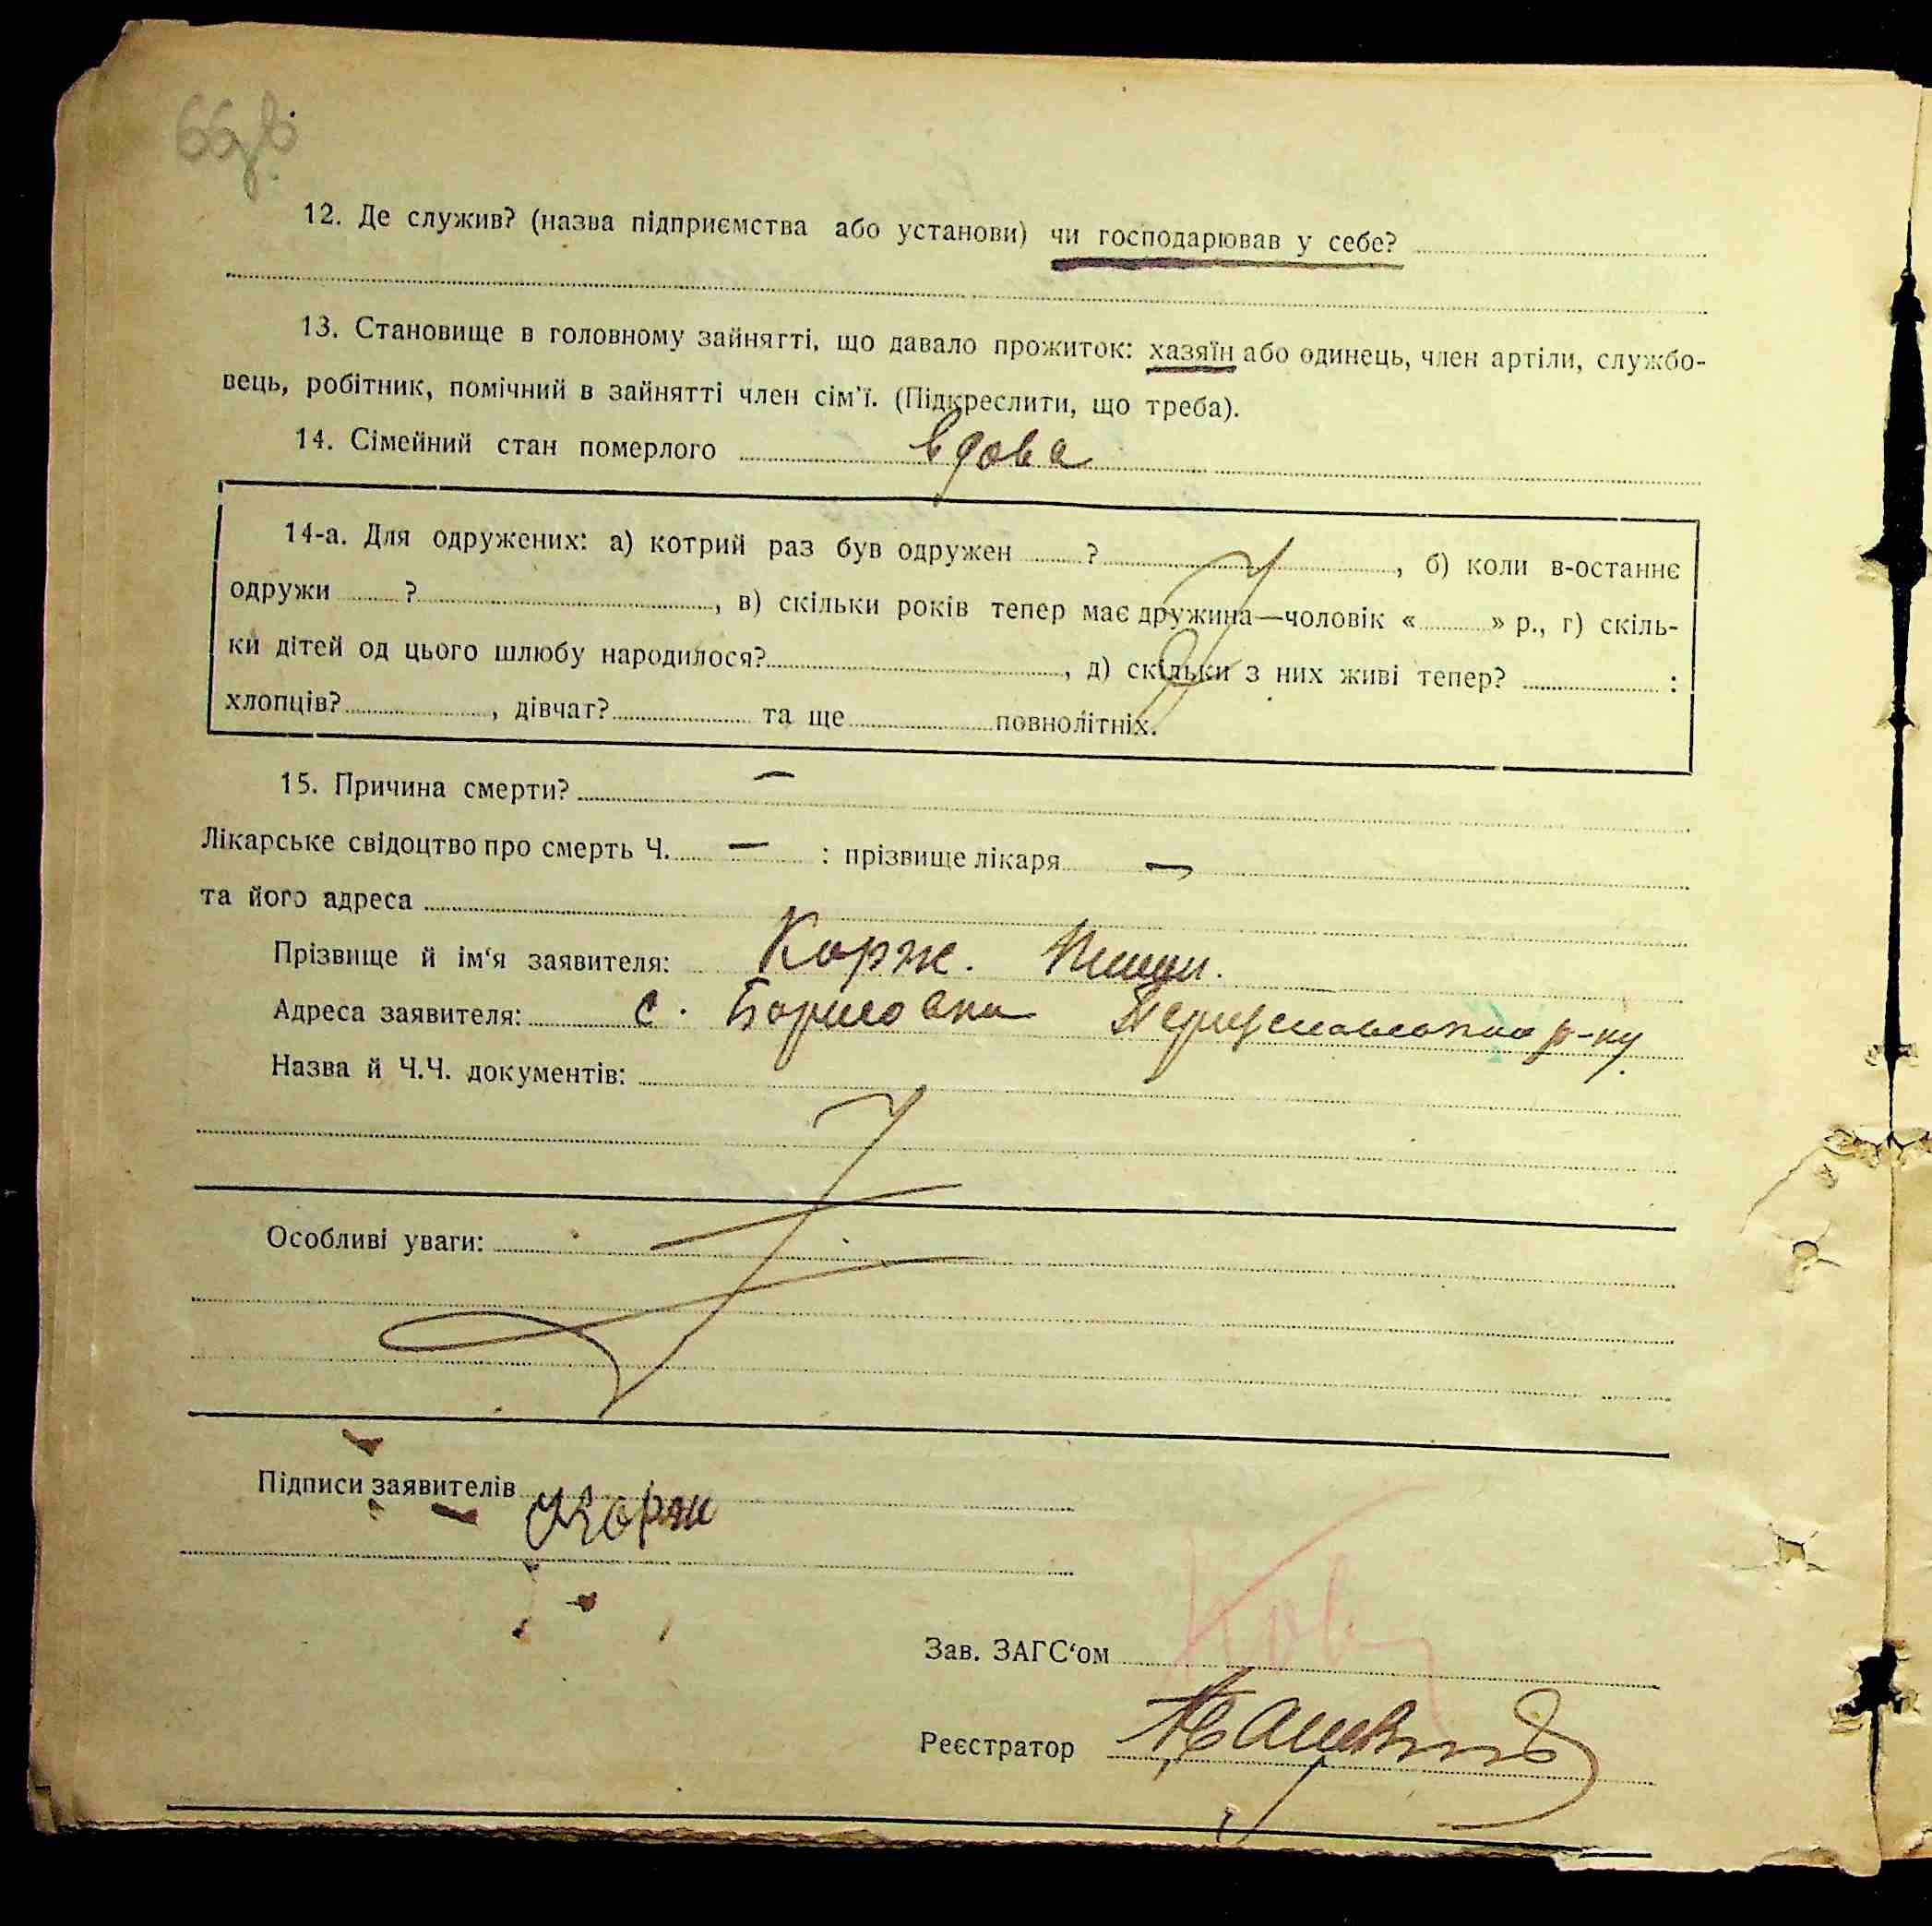 12. Де служив? (назва підприємства або установи) чи господарював у себе?
13. Становище в головному зайнятті, що давало прожиток: хазяїн або одинець, член артіли, службо-
вець, робітник, помічний в зайнятті член сім'ї. (Підкреслити, що треба).
14. Сімейний стан померлого вдова
14-а. Для одружених: а) котрий раз був одружен ? , б) коли в-останнє
одружи ? , в) скільки років тепер має дружина—чоловік « » р., г) скіль-
ки дітей од цього шлюбу народилося? , д) скільки з них живі тепер? :
хлопців? , дівчат? та ще повнолітніх.
15. Причина смерти? —
Лікарське свідоцтво про смерть Ч. — : прізвище лікаря —
та його адреса
Прізвище й ім‘я заявителя: Корж.
Адреса заявителя: с. р-ну
Назва й Ч.Ч. документів:
Особливі уваги:
Підписи заявителів Корж
Зав. ЗАГС‘ом
Реєстратор